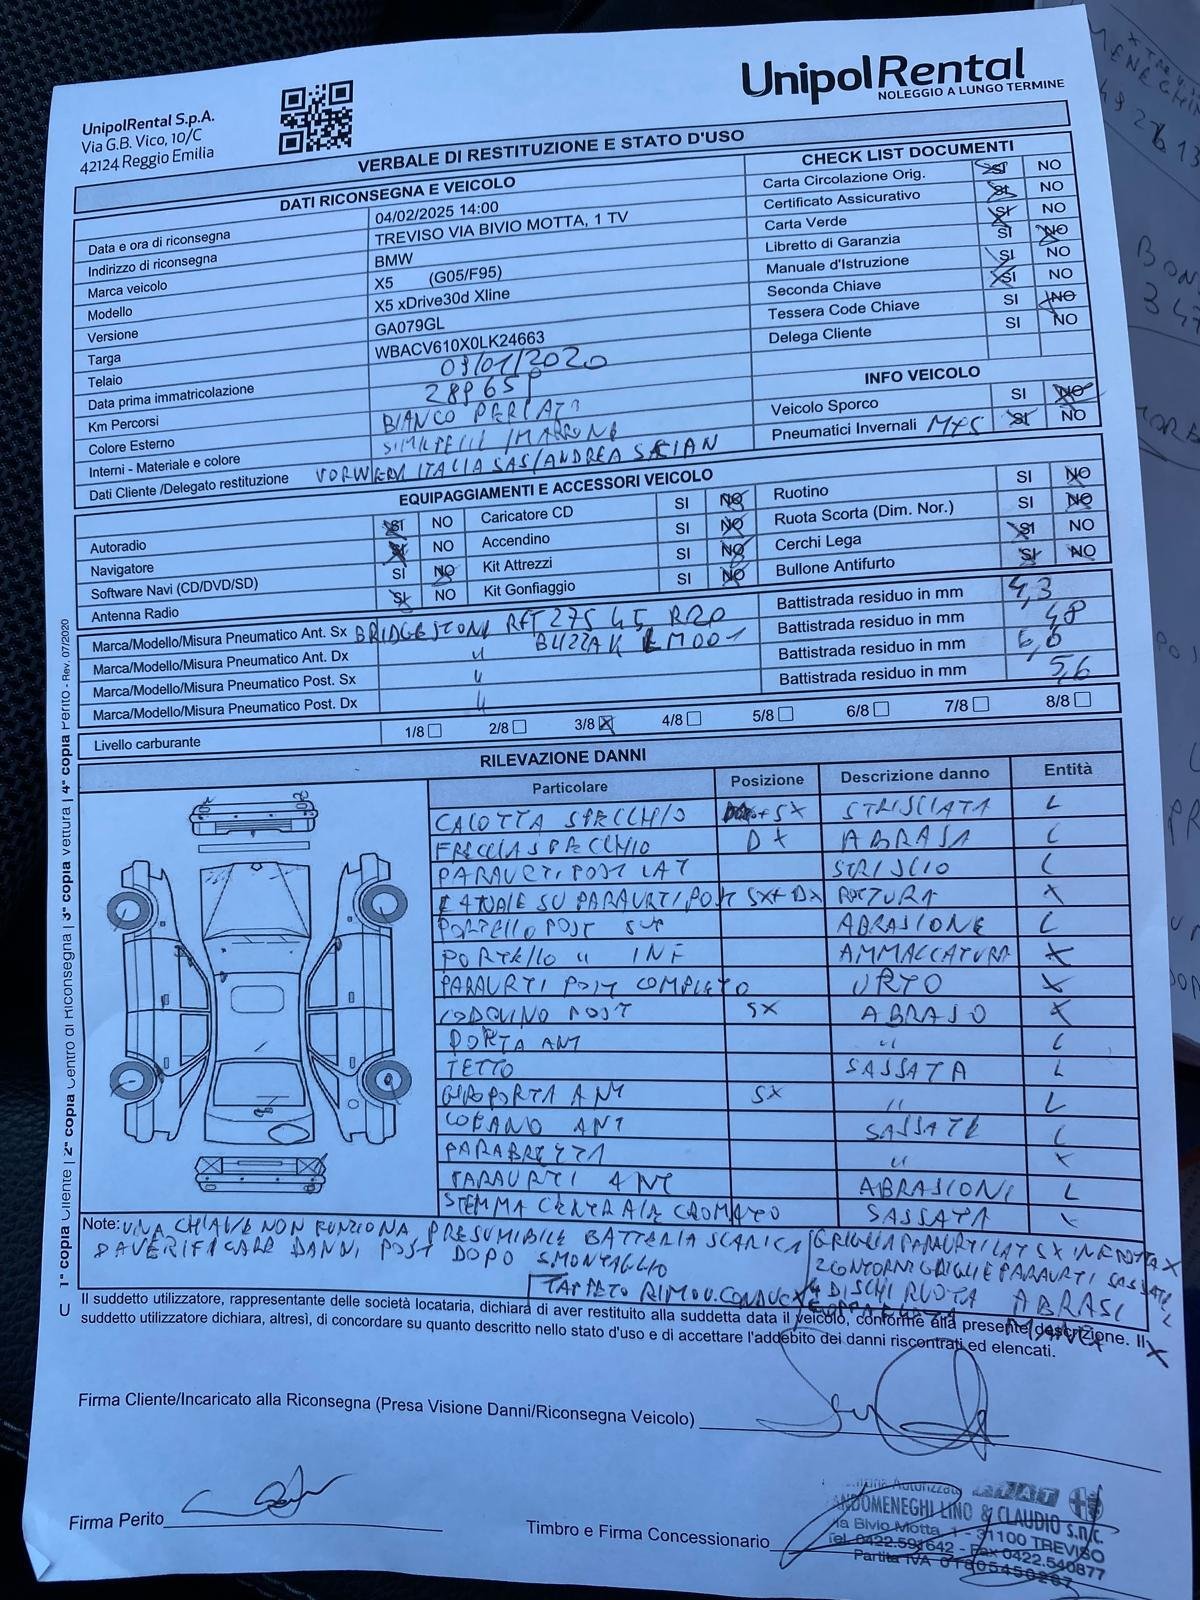 UnipolRental S.p.A.
Via G.B. Vico, 10/C
42124 Reggio Emilia
UnipolRental
NOLEGGIO A LUNGO TERMINE
VERBALE DI RESTITUZIONE E STATO D'USO
DATI RICONSEGNA E VEICOLO
Data e ora di riconsegna 04/02/2025 14:00
Indirizzo di riconsegna TREVISO VIA BIVIO MOTTA, 1 TV
Marca veicolo BMW
Modello X5 (G05/F95)
Versione X5 xDrive30d Xline
Targa GA079GL
Telaio WBACV610X0LK24663
Data prima immatricolazione 09/01/2020
Km Percorsi
Colore Esterno BIANCO PERLATO
Interni - Materiale e colore SIMILPELLE MARRONE
Dati Cliente /Delegato restituzione VORWERK ITALIA SAS/ANDREA
CHECK LIST DOCUMENTI
Carta Circolazione Orig. SI NO
Certificato Assicurativo SI NO
Carta Verde SI NO
Libretto di Garanzia SI NO
Manuale d'Istruzione SI NO
Seconda Chiave SI NO
Tessera Code Chiave SI NO
Delega Cliente SI NO
INFO VEICOLO
Veicolo Sporco SI NO
Pneumatici Invernali M+S SI NO
EQUIPAGGIAMENTI E ACCESSORI VEICOLO
Autoradio SI NO Caricatore CD SI NO Ruotino SI NO
Navigatore SI NO Accendino SI NO Ruota Scorta (Dim. Nor.) SI NO
Software Navi (CD/DVD/SD) SI NO Kit Attrezzi SI NO Cerchi Lega SI NO
Antenna Radio SI NO Kit Gonfiaggio SI NO Bullone Antifurto SI NO
Marca/Modello/Misura Pneumatico Ant. Sx BRIDGESTONE RFT 275 45 R20 Battistrada residuo in mm 4,3
Marca/Modello/Misura Pneumatico Ant. Dx " BLIZZAK LM001 Battistrada residuo in mm 4,8
Marca/Modello/Misura Pneumatico Post. Sx " Battistrada residuo in mm
Marca/Modello/Misura Pneumatico Post. Dx " Battistrada residuo in mm 5,6
Livello carburante 1/8 2/8 3/8 4/8 5/8 6/8 7/8 8/8
RILEVAZIONE DANNI
Particolare Posizione Descrizione danno Entità
CALOTTA SPECCHIO SX STRISCIATA L
FRECCIA SPECCHIO DX ABRASA L
PARAURTI POST LAT STRISCIO L
SU PARAURTI POST SX+DX ROTTURA X
PORTELLO POST SUP ABRASIONE L
PORTELLO " INF AMMACCATURA X
PARAURTI POST COMPLETO URTO X
CODOLINO POST SX ABRASO X
PORTA ANT " L
TETTO SASSATA L
GIROPORTA ANT SX " L
COFANO ANT SASSATE L
PARABREZZA " X
PARAURTI ANT ABRASIONI L
STEMMA CENTRALE CROMATO SASSATA
Note: UNA CHIAVE NON FUNZIONA PRESUMIBILE BATTERIA SCARICA
DA VERIFICARE DANNI POST DOPO SMONTAGGIO
GRIGLIA PARAURTI LAT SX INF ROTTA X
2 CONTORNI GRIGLIE PARAURTI SASSATE L
4 DISCHI RUOTA ABRASI L
MANCA X
Il suddetto utilizzatore, rappresentante delle società locataria, dichiara di aver restituito alla suddetta data il veicolo, conforme alla presente descrizione. Il
suddetto utilizzatore dichiara, altresì, di concordare su quanto descritto nello stato d'uso e di accettare l'addebito dei danni riscontrati ed elencati.
Firma Cliente/Incaricato alla Riconsegna (Presa Visione Danni/Riconsegna Veicolo)
Firma Perito
Timbro e Firma Concessionario
Autorizzata FIAT
ANDOMENEGHI LINO & CLAUDIO s.n.c.
Via Bivio Motta, 1 - 31100 TREVISO
Tel. 0422.591642 - Fax 0422.540877
Partita IVA
1ª copia Cliente | 2ª copia Centro di Riconsegna | 3ª copia vettura | 4ª copia Perito - Rev. 07/2020